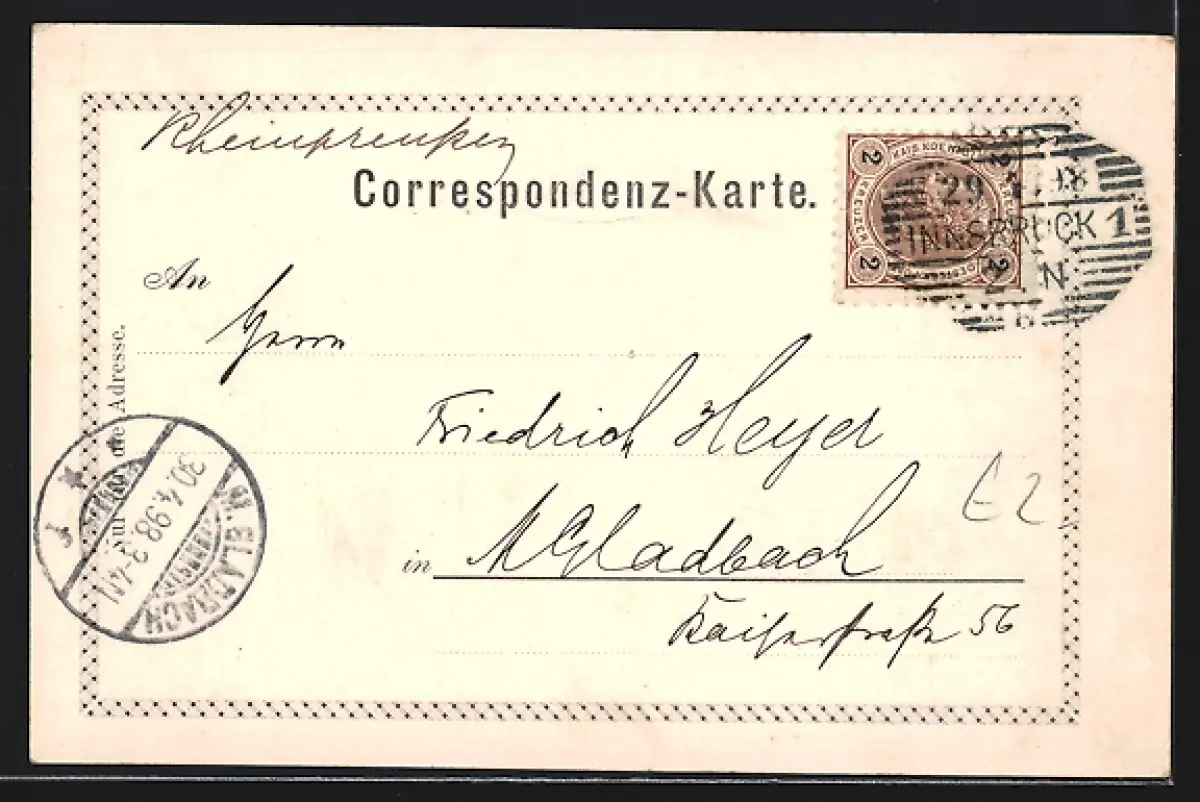 Rheinpreußen
Correspondenz-Karte.
2 KAIS. KOENIGL. 2
KREUZER
2 2
29 4 98
INNSBRUCK 1
N
An
Herrn
Friedrich Heyer
in M Gladbach
Kaiserstraße 56
Nur für die Adresse.
M. GLADBACH
30.4.98.3-4N